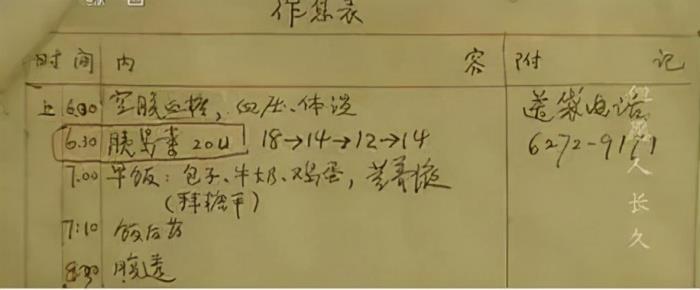 作息表
时间 内容 附记
上 6.00 空腹血糖，血压、体温 送袋电话
6.30 胰岛素 20u 18→14→12→14 6272-9171
7.00 早饭：包子、牛奶、鸡蛋，营养液
(拜糖平)
7:10 饭后药
8.00 腹透
久长久